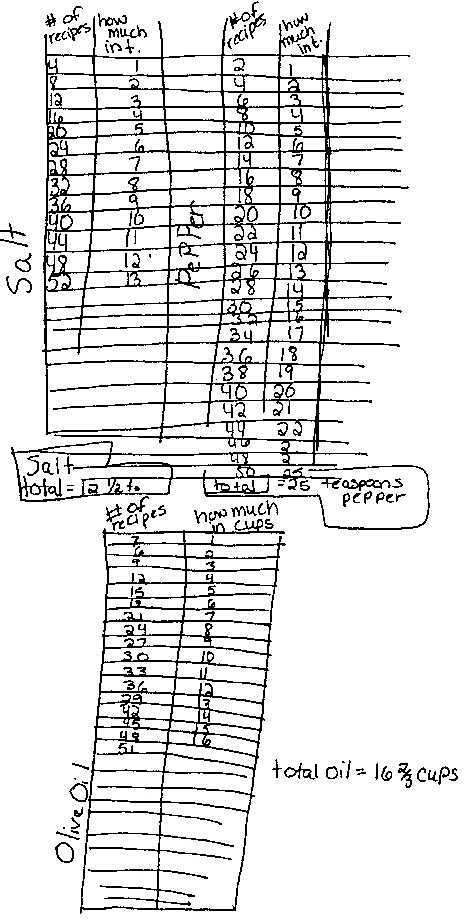 # of recipes how much in t.
4 1
8 2
12 3
16 4
20 5
24 6
28 7
32 8
36 9
40 10
44 11
48 12
52 13
Salt
Salt
total = 12 1/2 t.
# of recipes how much in t.
2 1
4 2
6 3
8 4
10 5
12 6
14 7
16 8
18 9
20 10
22 11
24 12
26 13
28 14
30 15
32 16
34 17
36 18
38 19
40 20
42 21
44 22
46
48
50 25
Pepper
total = 25 teaspoons
pepper
# of recipes how much in cups
1
6 2
9 3
12 4
15 5
6
21 7
24 8
27 9
30 10
33 11
36 12
13
42 14
45 15
48 16
51
Olive Oil
total oil = 16 2/3 cups